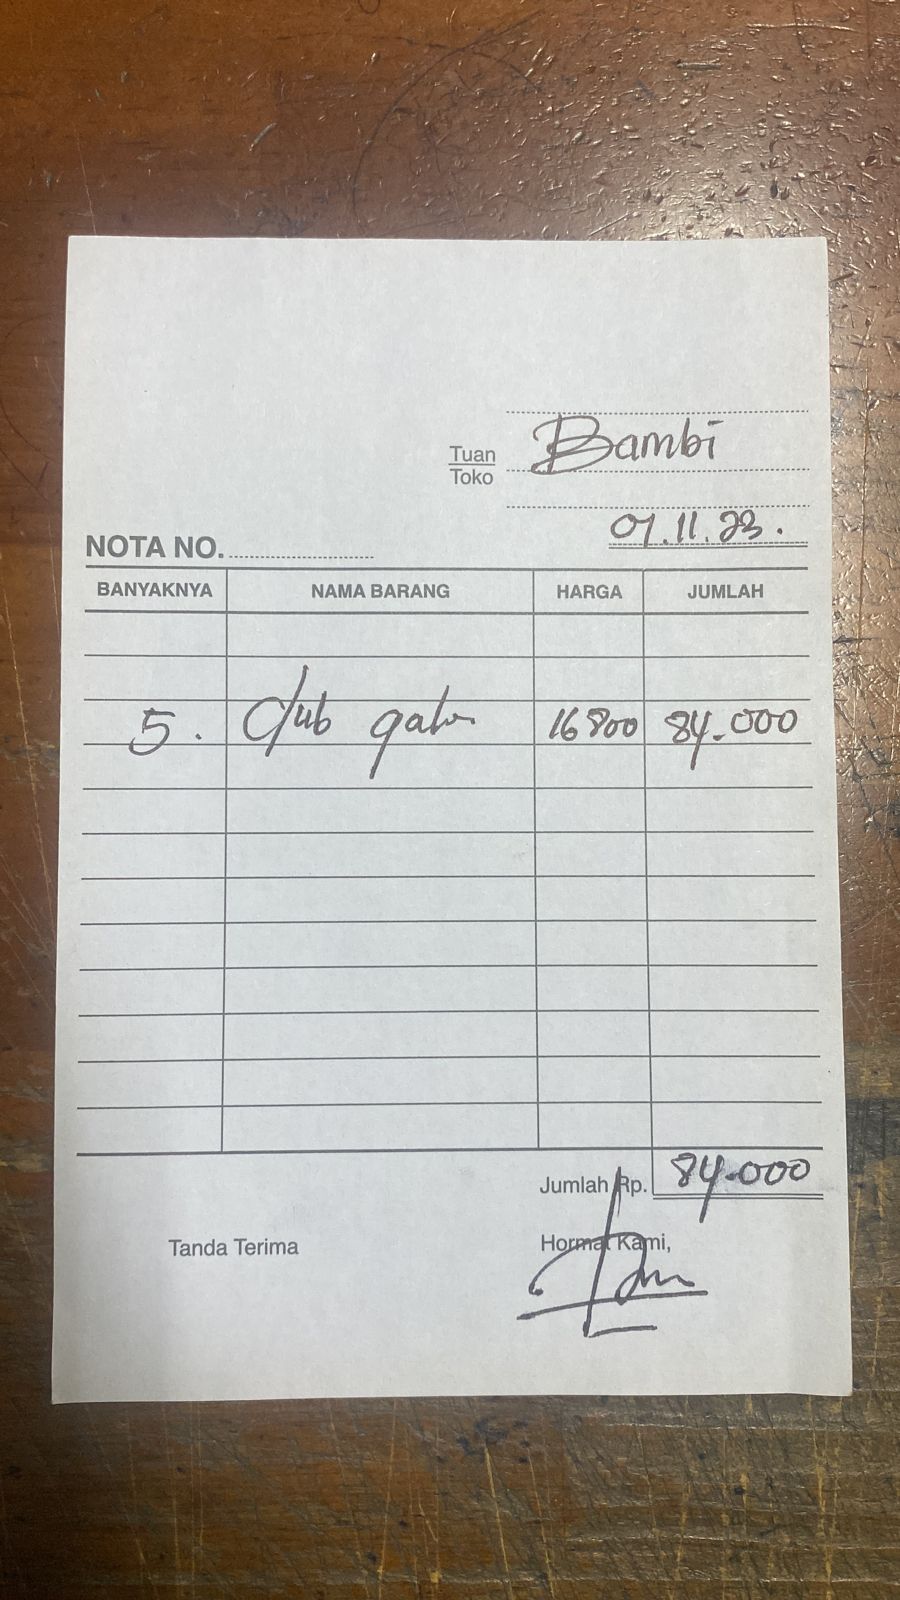 Tuan
Toko
Bambi
07.11.23.
NOTA NO.
BANYAKNYA NAMA BARANG HARGA JUMLAH
5. Club galon 16 800 84.000
Jumlah Rp. 84.000
Tanda Terima Hormat Kami,